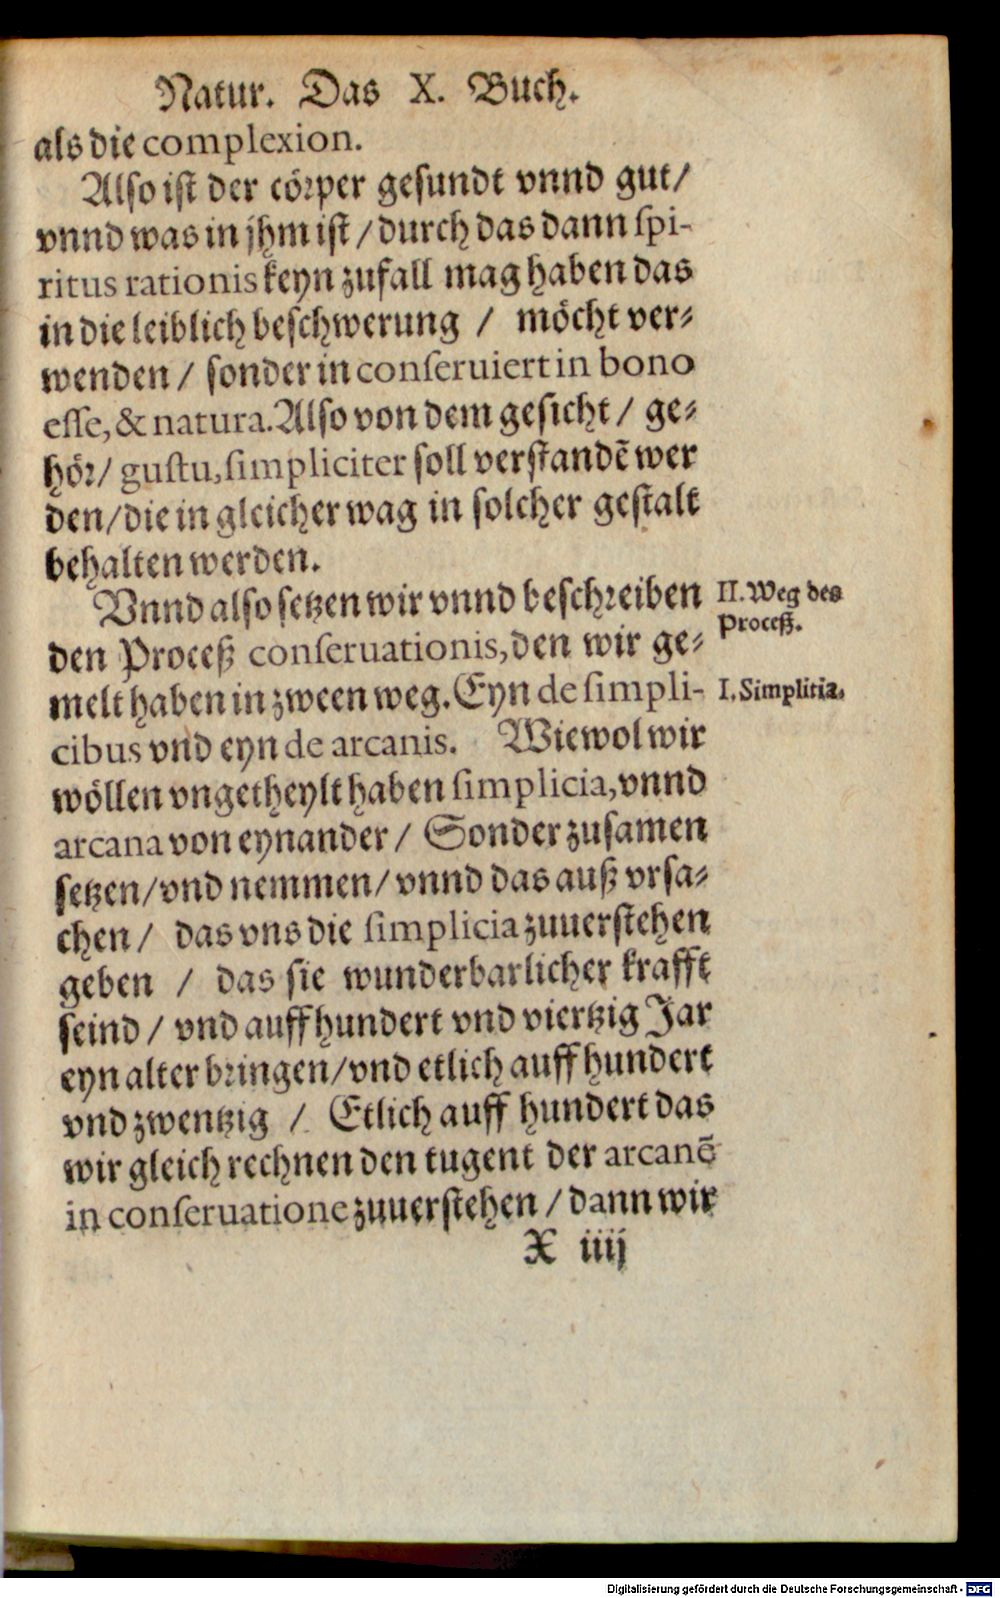 Natur. Das X. Buch.
als die complexion.
Also ist der cörper gesundt vnnd gut/
vnnd was in jhm ist / durch das dann spi-
ritus rationis keyn zufall mag haben das
in die leiblich beschwerung / möcht ver-
wenden / sonder in conseruiert in bono
esse, & natura. Also von dem gesicht / ge-
hör / gustu, simpliciter soll verstandē wer
den / die in gleicher wag in solcher gestalt
behalten werden.
Vnnd also setzen wir vnnd beschreiben
II. Weg des
Proceß.
den Proceß conseruationis, den wir ge-
melt haben in zween weg. Eyn de simpli-
I. Simplitia.
cibus vnd eyn de arcanis. Wiewol wir
wöllen vngetheylt haben simplicia, vnnd
arcana von eynander / Sonder zusamen
setzen / vnd nemmen / vnnd das auß vrsa-
chen / das vns die simplicia zuuerstehen
geben / das sie wunderbarlicher krafft
seind / vnd auff hundert vnd viertzig Jar
eyn alter bringen / vnd etlich auff hundert
vnd zwentzig / Etlich auff hundert das
wir gleich rechnen den tugent der arcanē
in conseruatione zuuerstehen / dann wir
X iiij
Digitalisierung gefördert durch die Deutsche Forschungsgemeinschaft - DFG